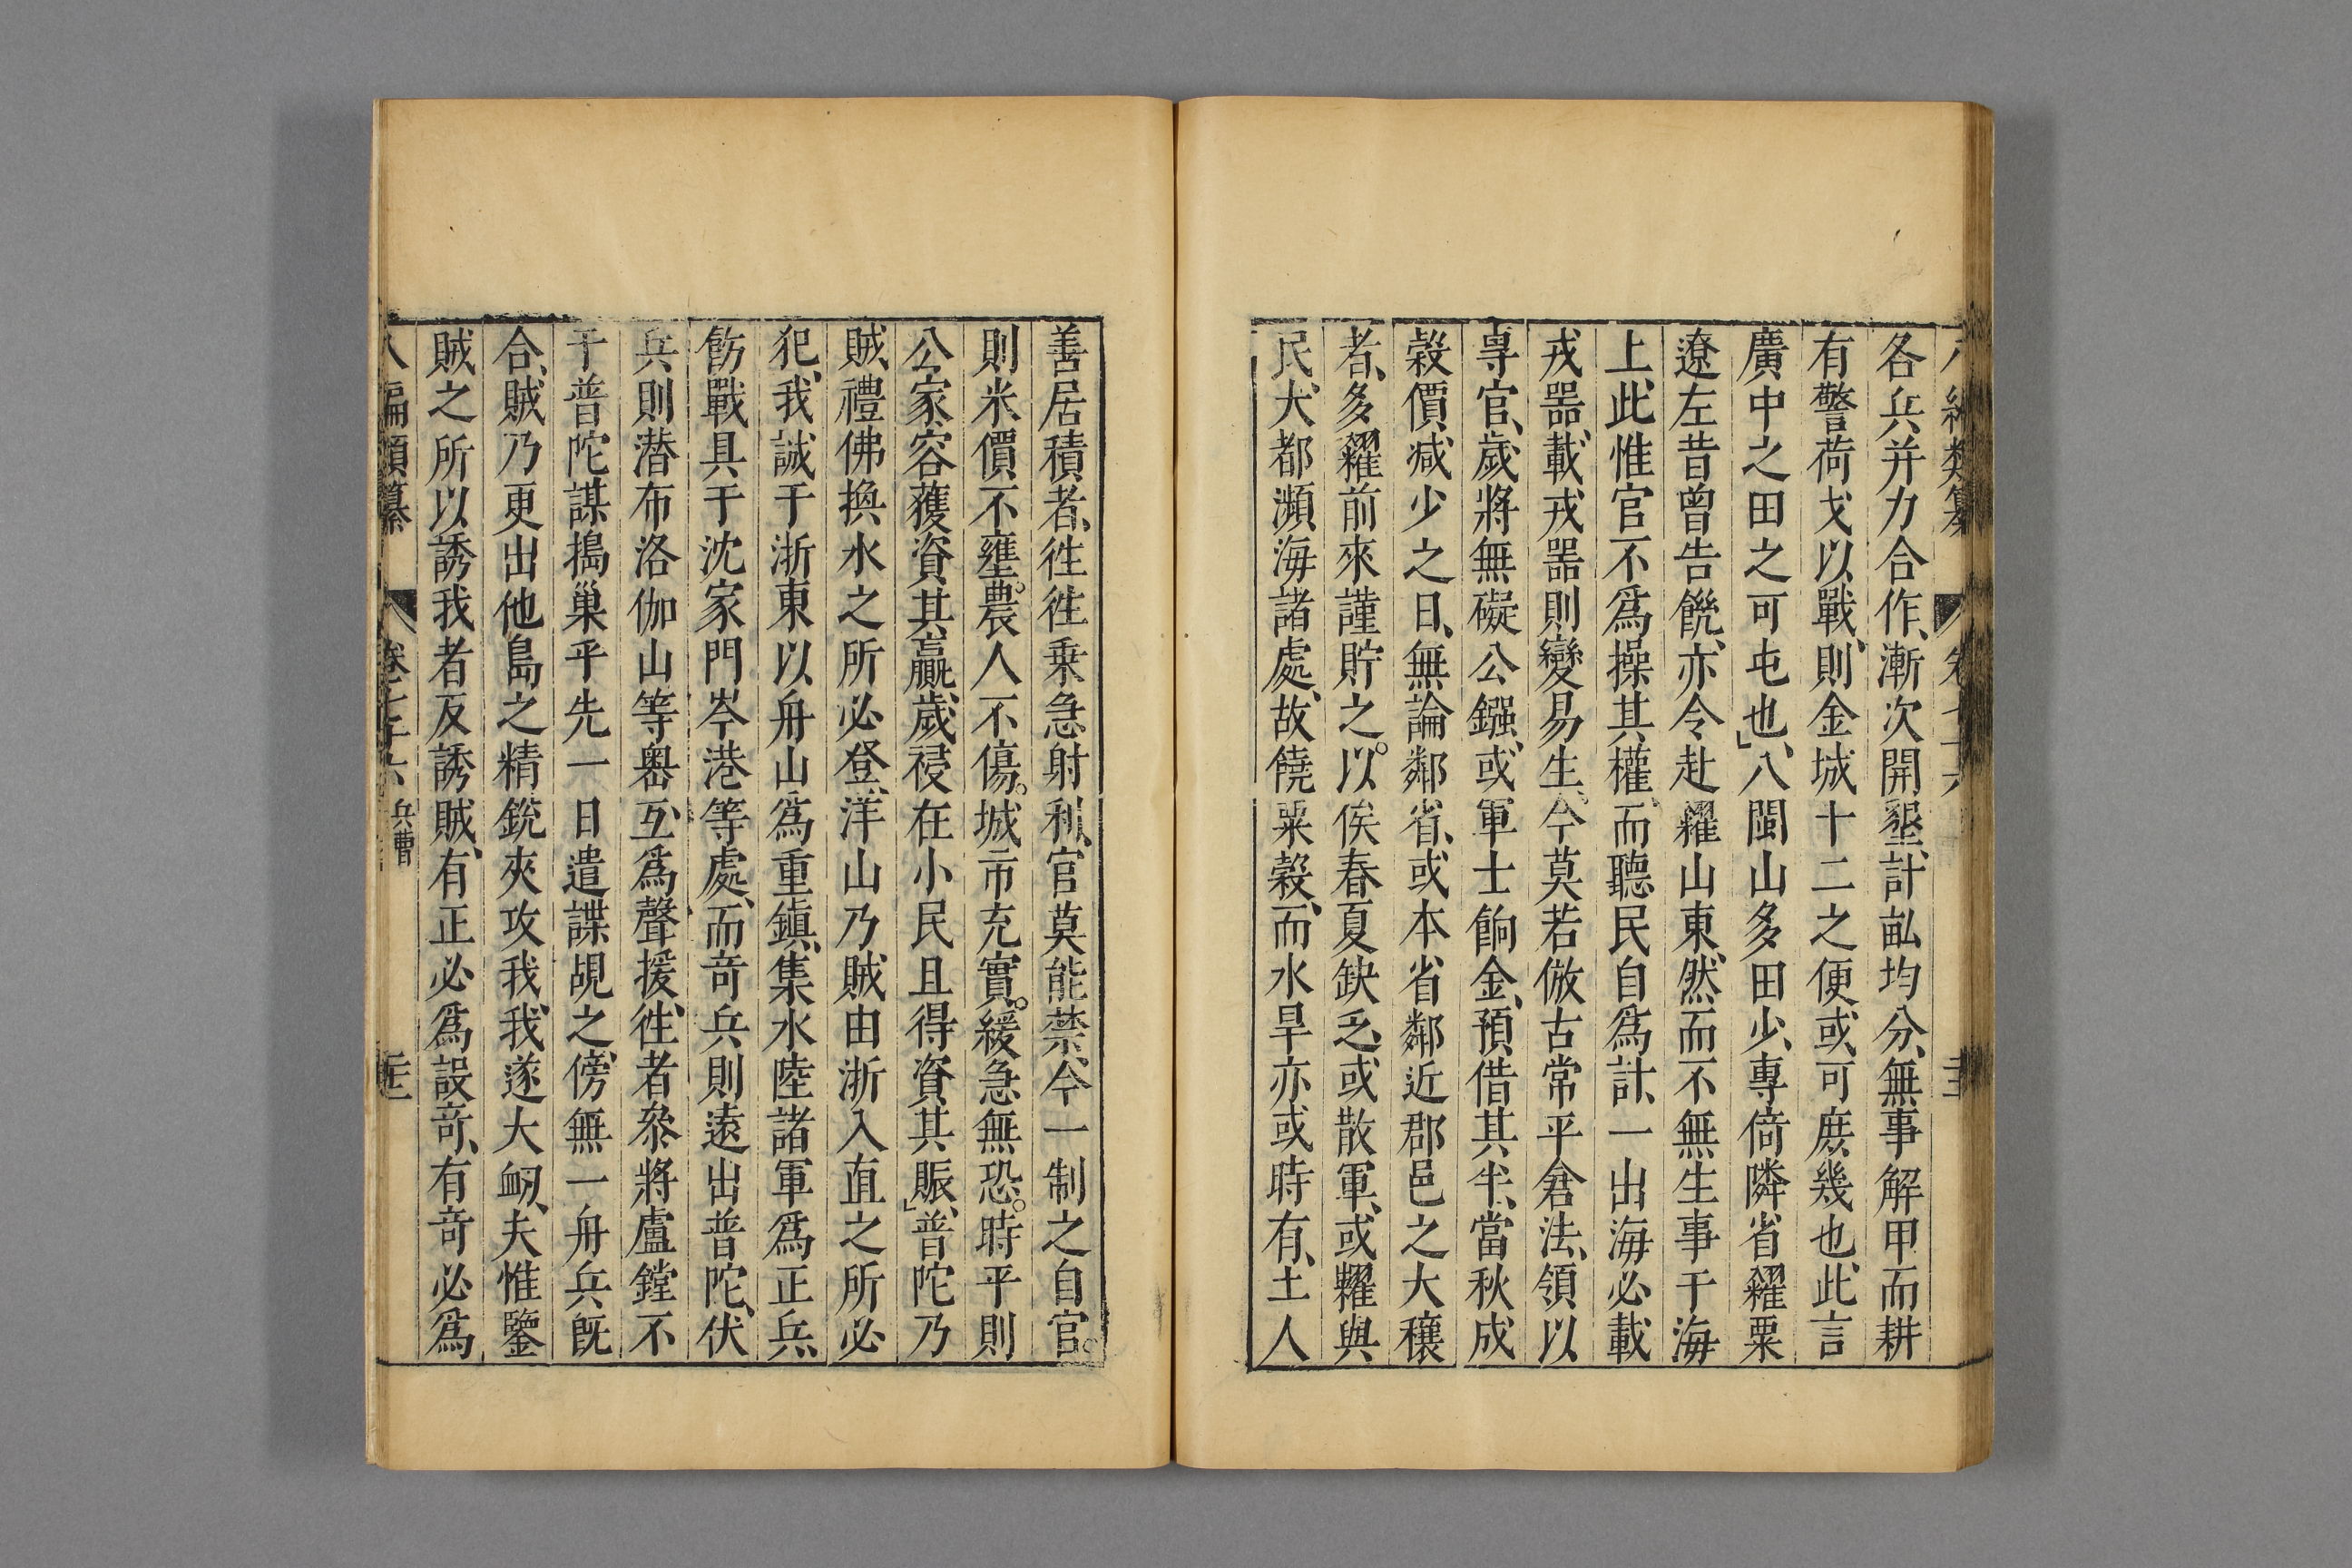 各兵并力合作漸次開墾計畝均分無事解甲而耕
有警荷戈以戰則金城十二之便或可庶幾也此言
廣中之田之可屯也八閩山多田少專倚隣省糴粟
遼左昔曽告饑亦令赴糴山東然而不無生事于海
上此惟官不爲操其權而聽民自爲計一出海必載
戎噐載戎噐則變易生今莫若倣古常平倉法領以
專官歲將無礙公鏹或軍士餉金預借其半當秋成
穀價减少之日無論鄰省或本省鄰近郡邑之大穰
者多糴前來謹貯之以俟春夏缺乏或散軍或糶與
民大都瀕海諸處故饒粟穀而水旱亦或時有土人
善居積者徃徃乗急射利官莫能禁今一制之自官
則米價不壅農人不傷城市充實緩急無恐時平則
公家容獲資其贏歲祲在小民且得資其賑普陀乃
賊禮佛換水之所必登洋山乃賊由浙入直之所必
犯我誠于浙東以舟山爲重鎭集水陸諸軍爲正兵
飭戰具于沈家門岑港等處而竒兵則遠出普陀伏
兵則潜布洛伽山等嶴互爲聲援徃者叅將盧鏜不
于普陀謀搗巢乎先一日遣諜覘之傍無一舟兵旣
合賊乃更出他島之精銃夾攻我我遂大衂夫惟鑒
賊之所以誘我者反誘賊有正必爲設竒有竒必爲
八編類纂 卷七十六 兵曹 二十三